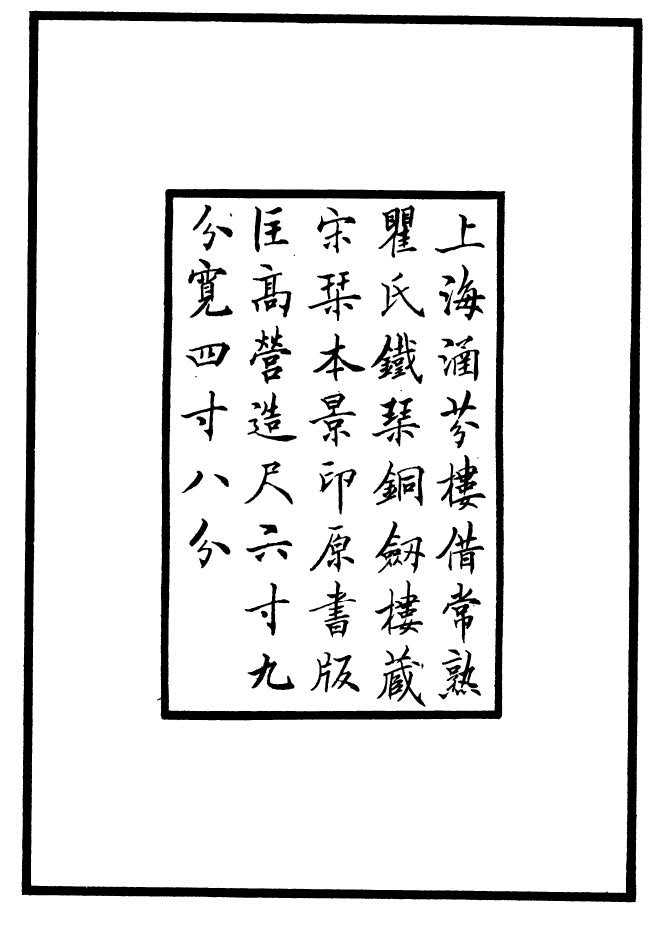 上海涵芬樓借常熟
瞿氏鐵琹銅劒樓藏
宋琹本景印原書版
匡高營造尺六寸九
分寬四寸八分